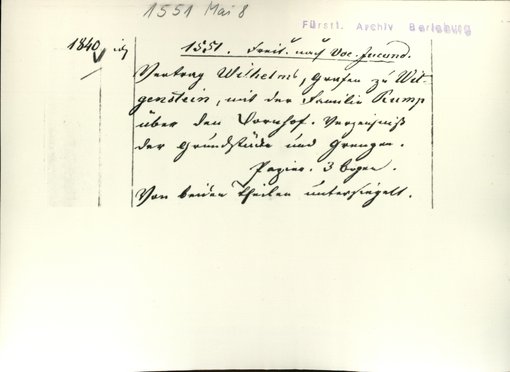 1551 Mai 8
Fürstl. Archiv Berleburg
1840
1551. Freit. nach Voc. Jucund.
Vertrag Wilhelms, Grafen zu Wit-
genstein, mit der Familie Rump
über den Dornhof. Verzeichniß
der Grundstücke und Grenzen.
Papier. 3 Bogen.
Von beiden Theilen untersiegelt.